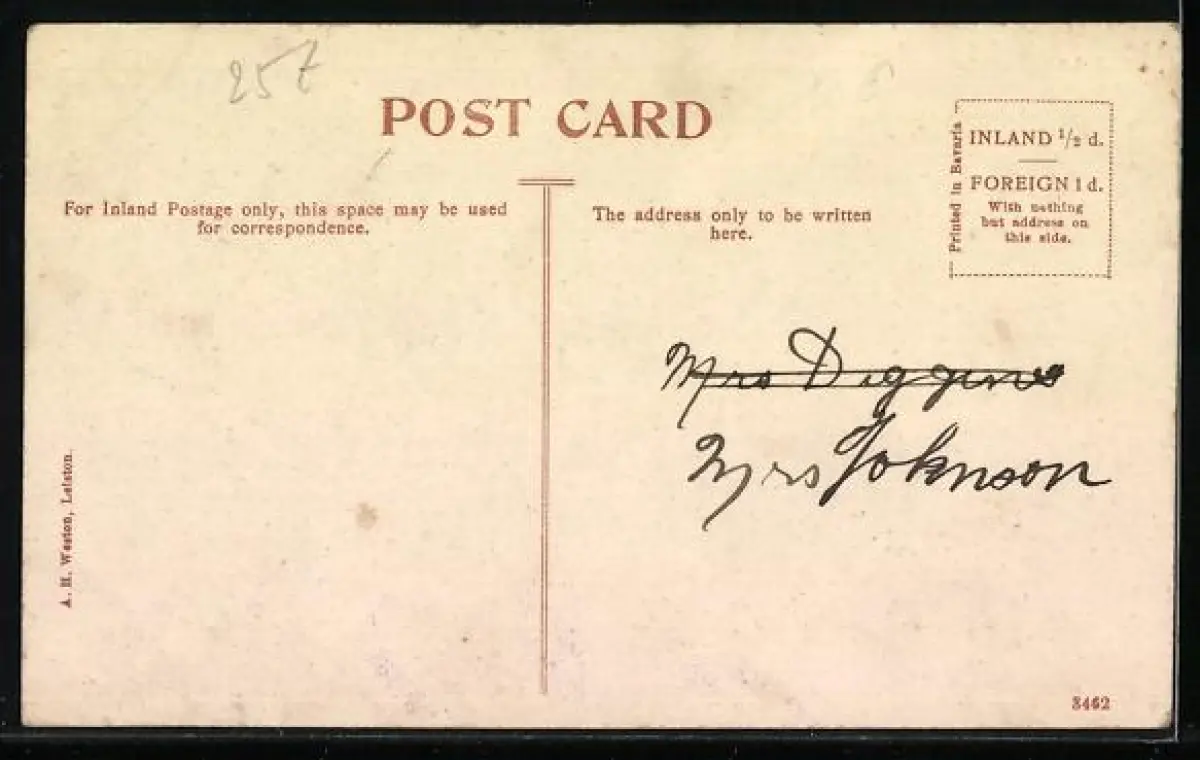 25t
POST CARD
For Inland Postage only, this space may be used
for correspondence.
The address only to be written
here.
Printed in Bavaria
INLAND 1/2 d.
FOREIGN 1 d.
With nothing
but address on
this side.
Mrs Diggins
Mrs Johnson
A. H. Weston, Leiston.
3462